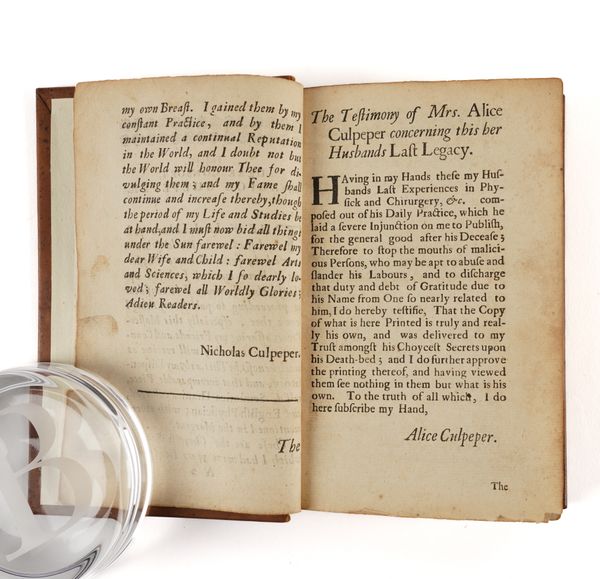 my own Breaſt. I gained them by my
conſtant Practice, and by them I
maintained a continual Reputation
in the World, and I doubt not but
the World will honour Thee for di-
vulging them; and my Fame ſhall
continue and increaſe thereby, though
the period of my Life and Studies be
at hand, and I muſt now bid all things
under the Sun farewel: Farewel my
dear Wife and Child: farewel Arts
and Sciences, which I ſo dearly lo-
ved; farewel all Worldly Glories;
Adieu Readers.
Nicholas Culpeper.
The
The Teſtimony of Mrs. Alice
Culpeper concerning this her
Husbands Laſt Legacy.
HAving in my Hands theſe my Huſ-
bands Laſt Experiences in Phy-
ſick and Chirurgery, &c. com-
poſed out of his Daily Practice, which he
laid a ſevere Injunction on me to Publiſh,
for the general good after his Deceaſe;
Therefore to ſtop the mouths of malici-
ous Perſons, who may be apt to abuſe and
ſlander his Labours, and to diſcharge
that duty and debt of Gratitude due to
his Name from One ſo nearly related to
him, I do hereby teſtifie, That the Copy
of what is here Printed is truly and real-
ly his own, and was delivered to my
Truſt amongſt his Choyceſt Secrets upon
his Death-bed; and I do further approve
the printing thereof, and having viewed
them ſee nothing in them but what is his
own. To the truth of all which, I do
here ſubſcribe my Hand,
Alice Culpeper.
The
B